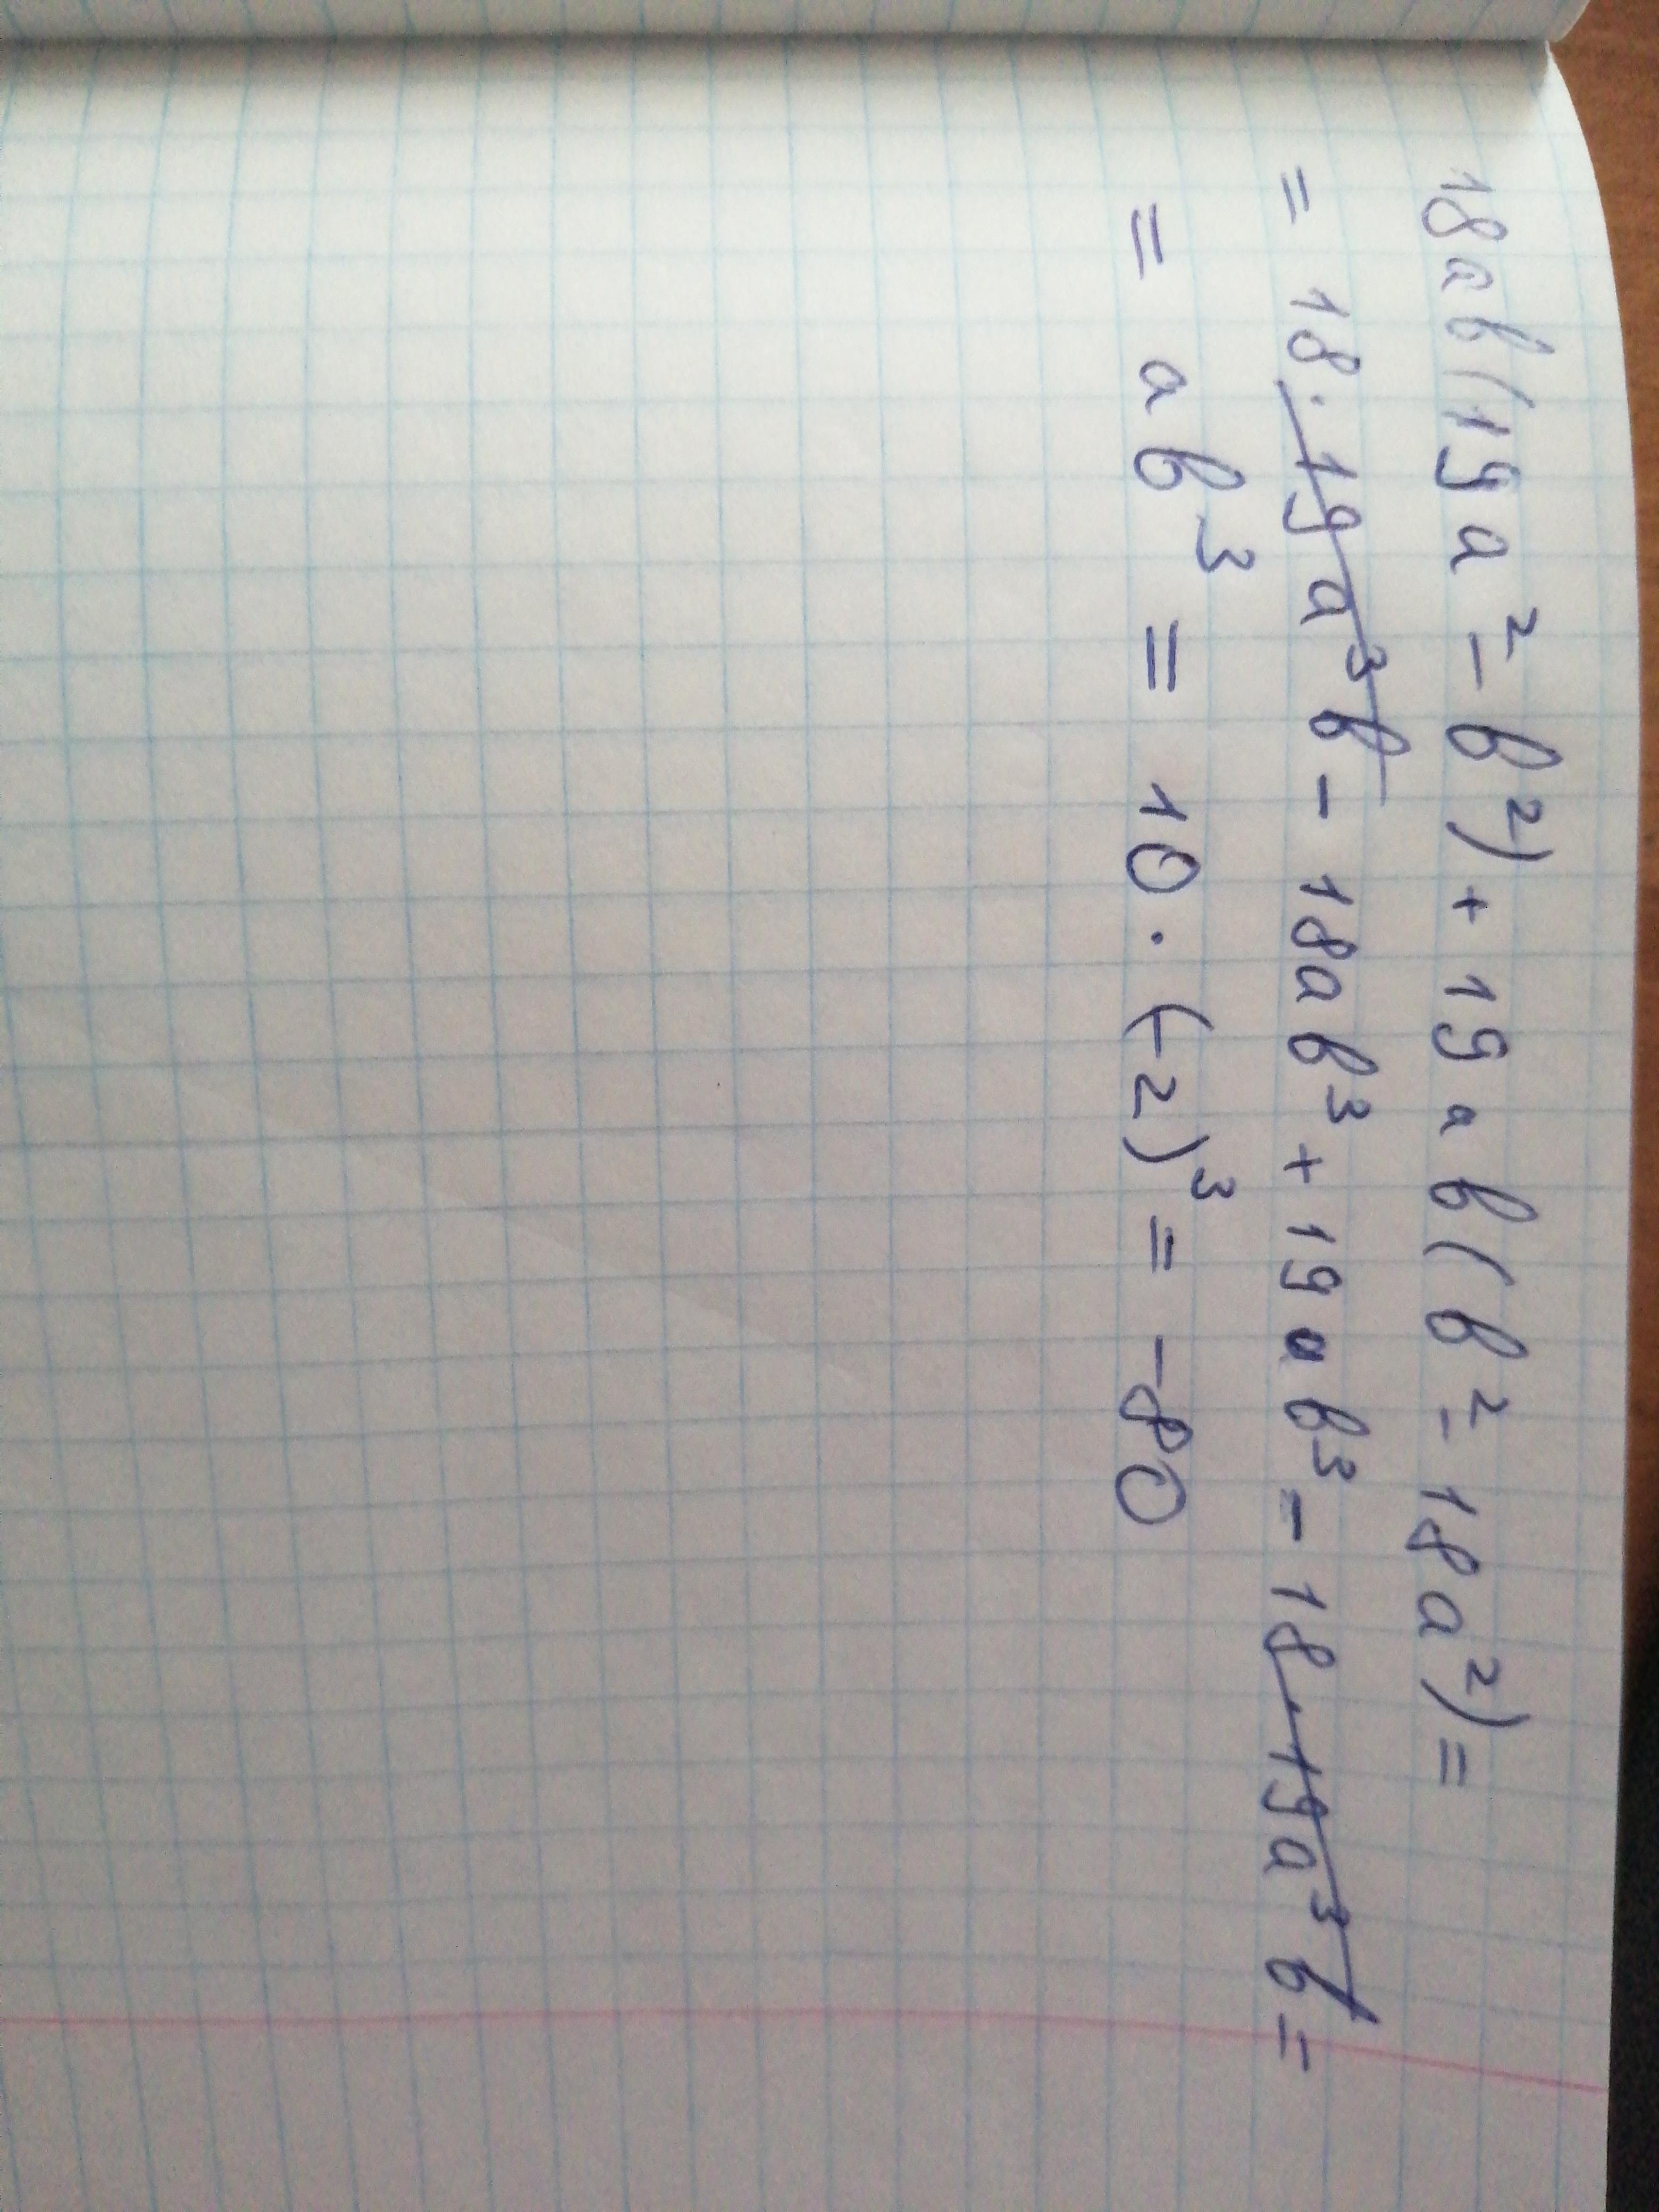 18ab(19a²-b²)+19ab(b²-18a²)=
=18·19a³b-18ab³+19ab³-18·19a³b=
=ab³=10·(-2)³=-80